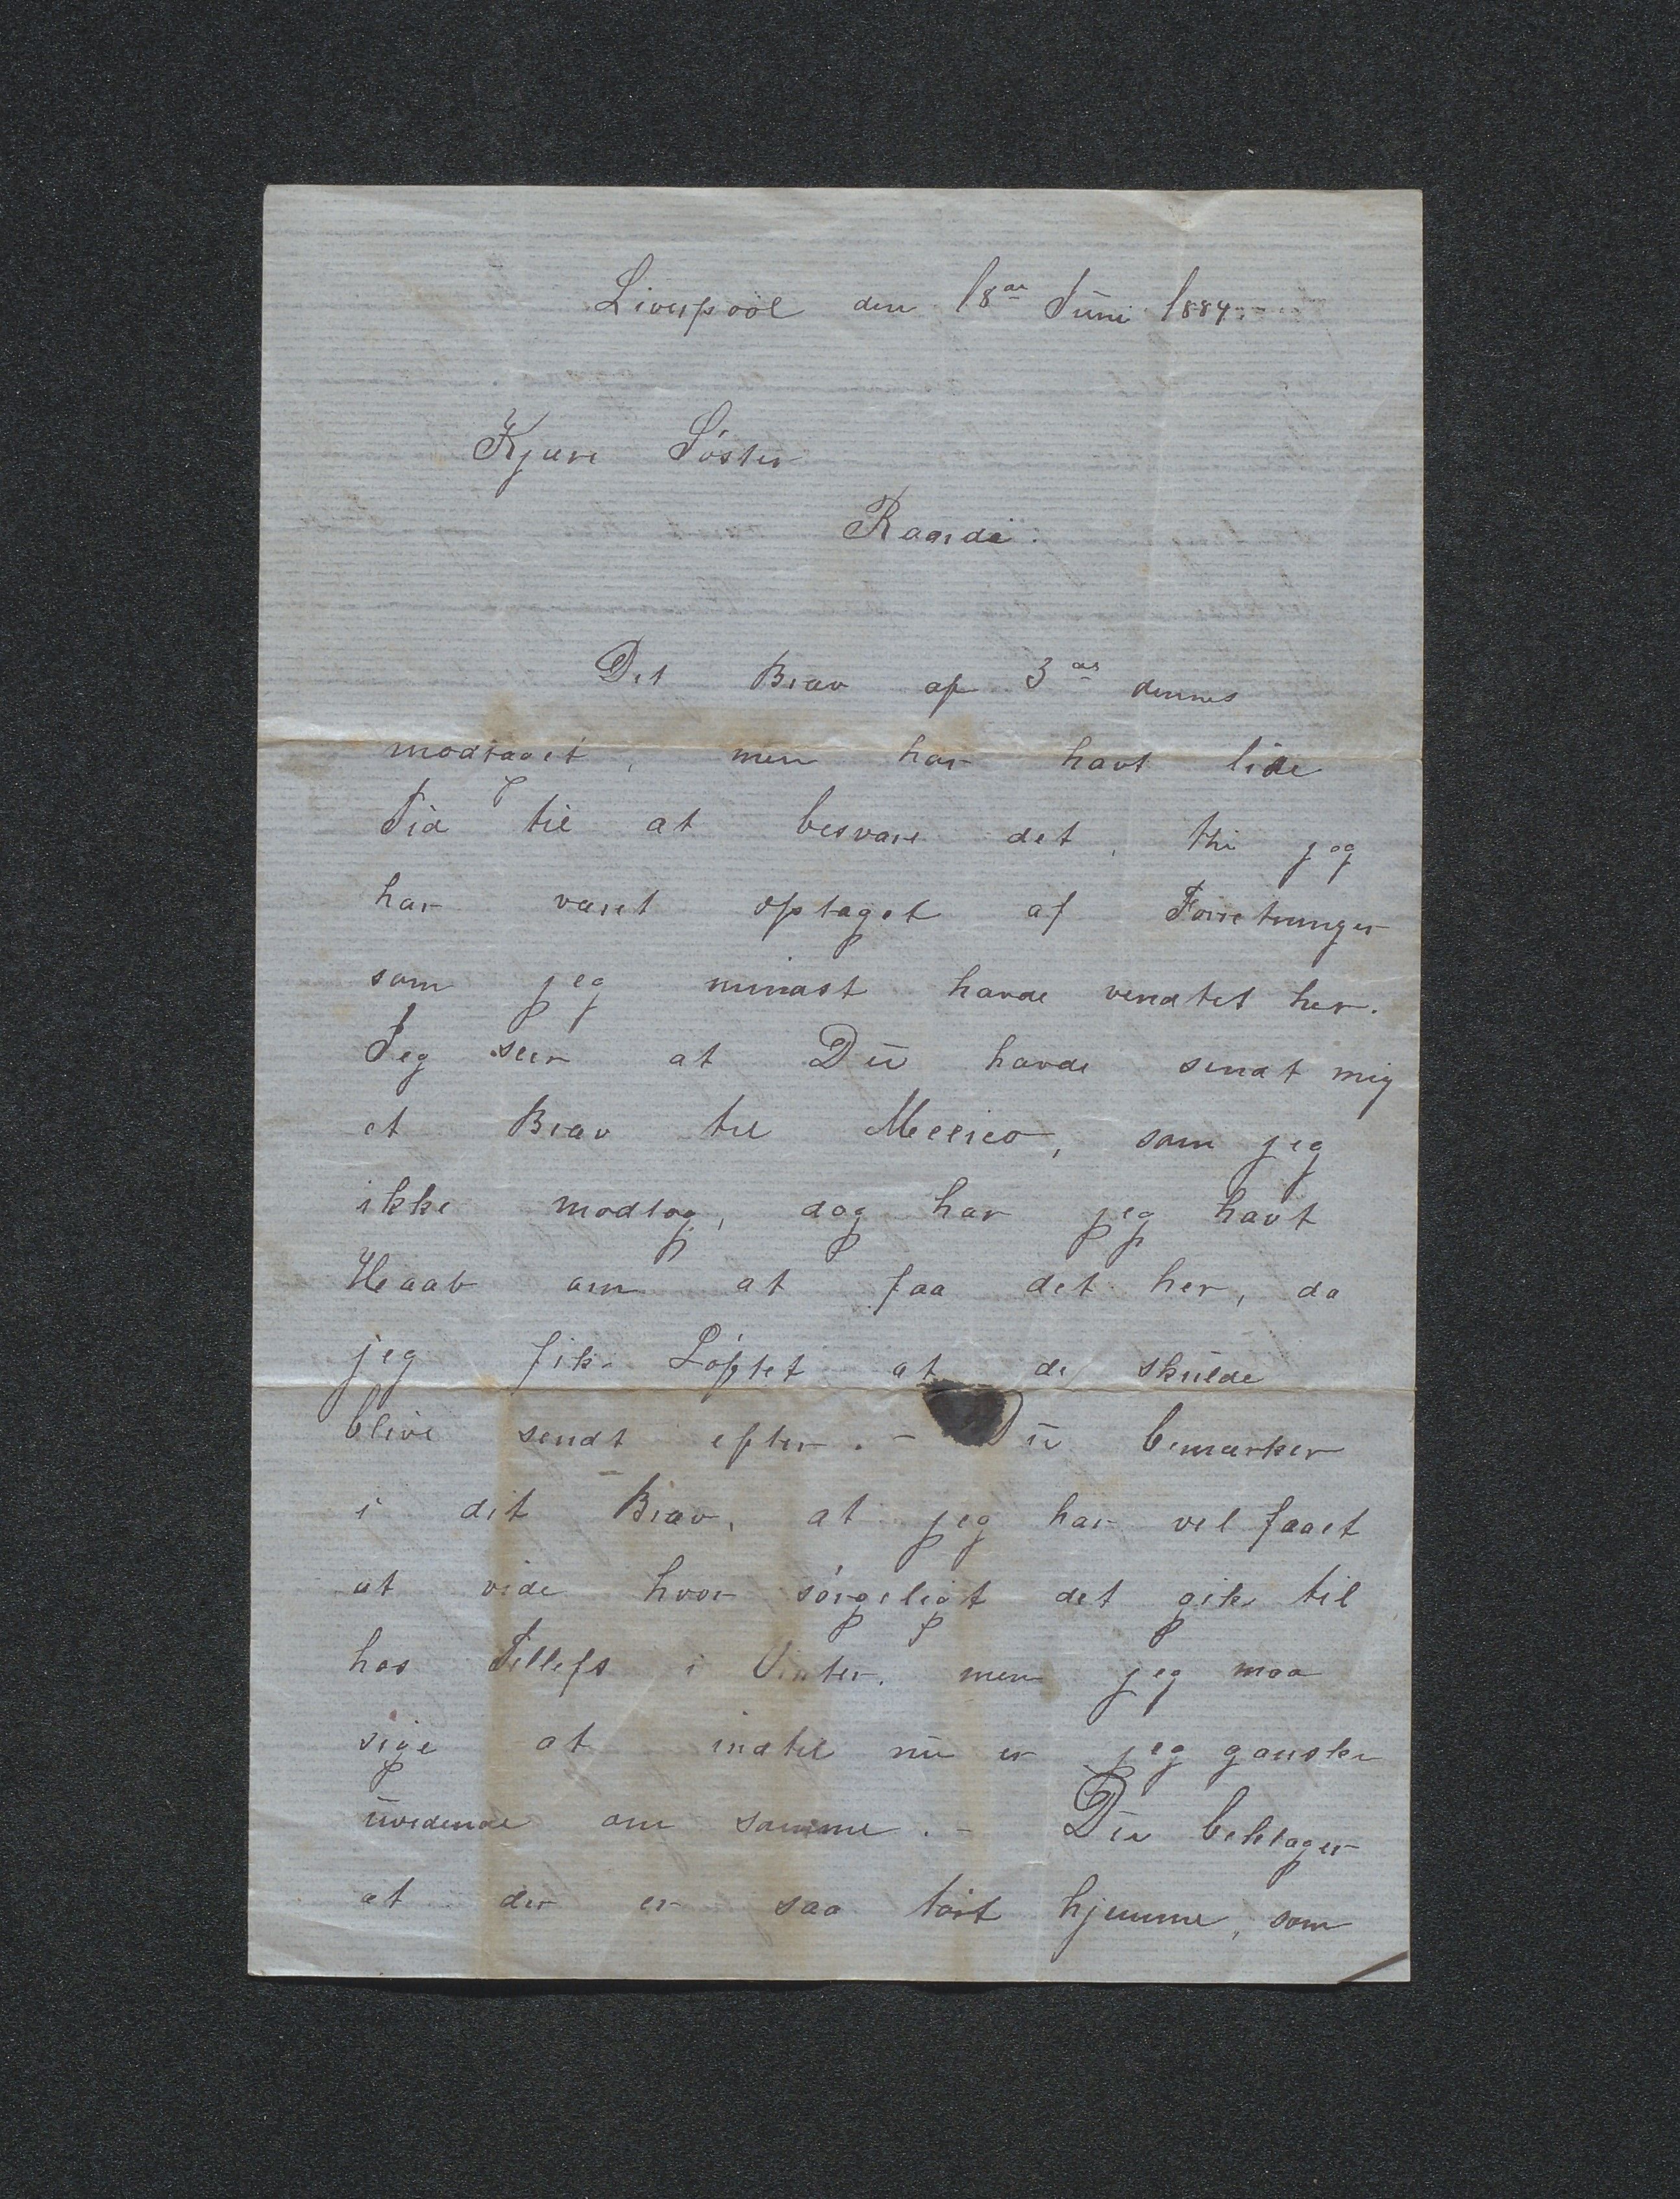 Liverpool den 18de Juni 1884.
Kjære Søster
Raande.
Dit Brav af 3de dennes
modtaget, men har havt lide
Tid til at besvare det, thi jeg
har været optaget af Forretninger
som jeg mindst havde vendtet her.
Jeg seer at Du havde sendt mig
et Brav til Mexico, som jeg
ikke modtog, dog har jeg havt
Haab om at faa det her, da
jeg fik Løftet at de skulde
blive sendt efter. - Du bemærker
i dit Brav, at jeg har vel faaet
at vide hvor sørgeligt det gik til
hos Tellefs i Vinter. men jeg maa
sige at indtil nu er jeg ganske
uvidende om samme. - Du beklager
at der er saa tørt hjemme, som